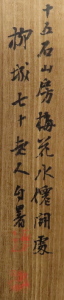 十五石山房梅花水僊開處
柳城七十無人自署